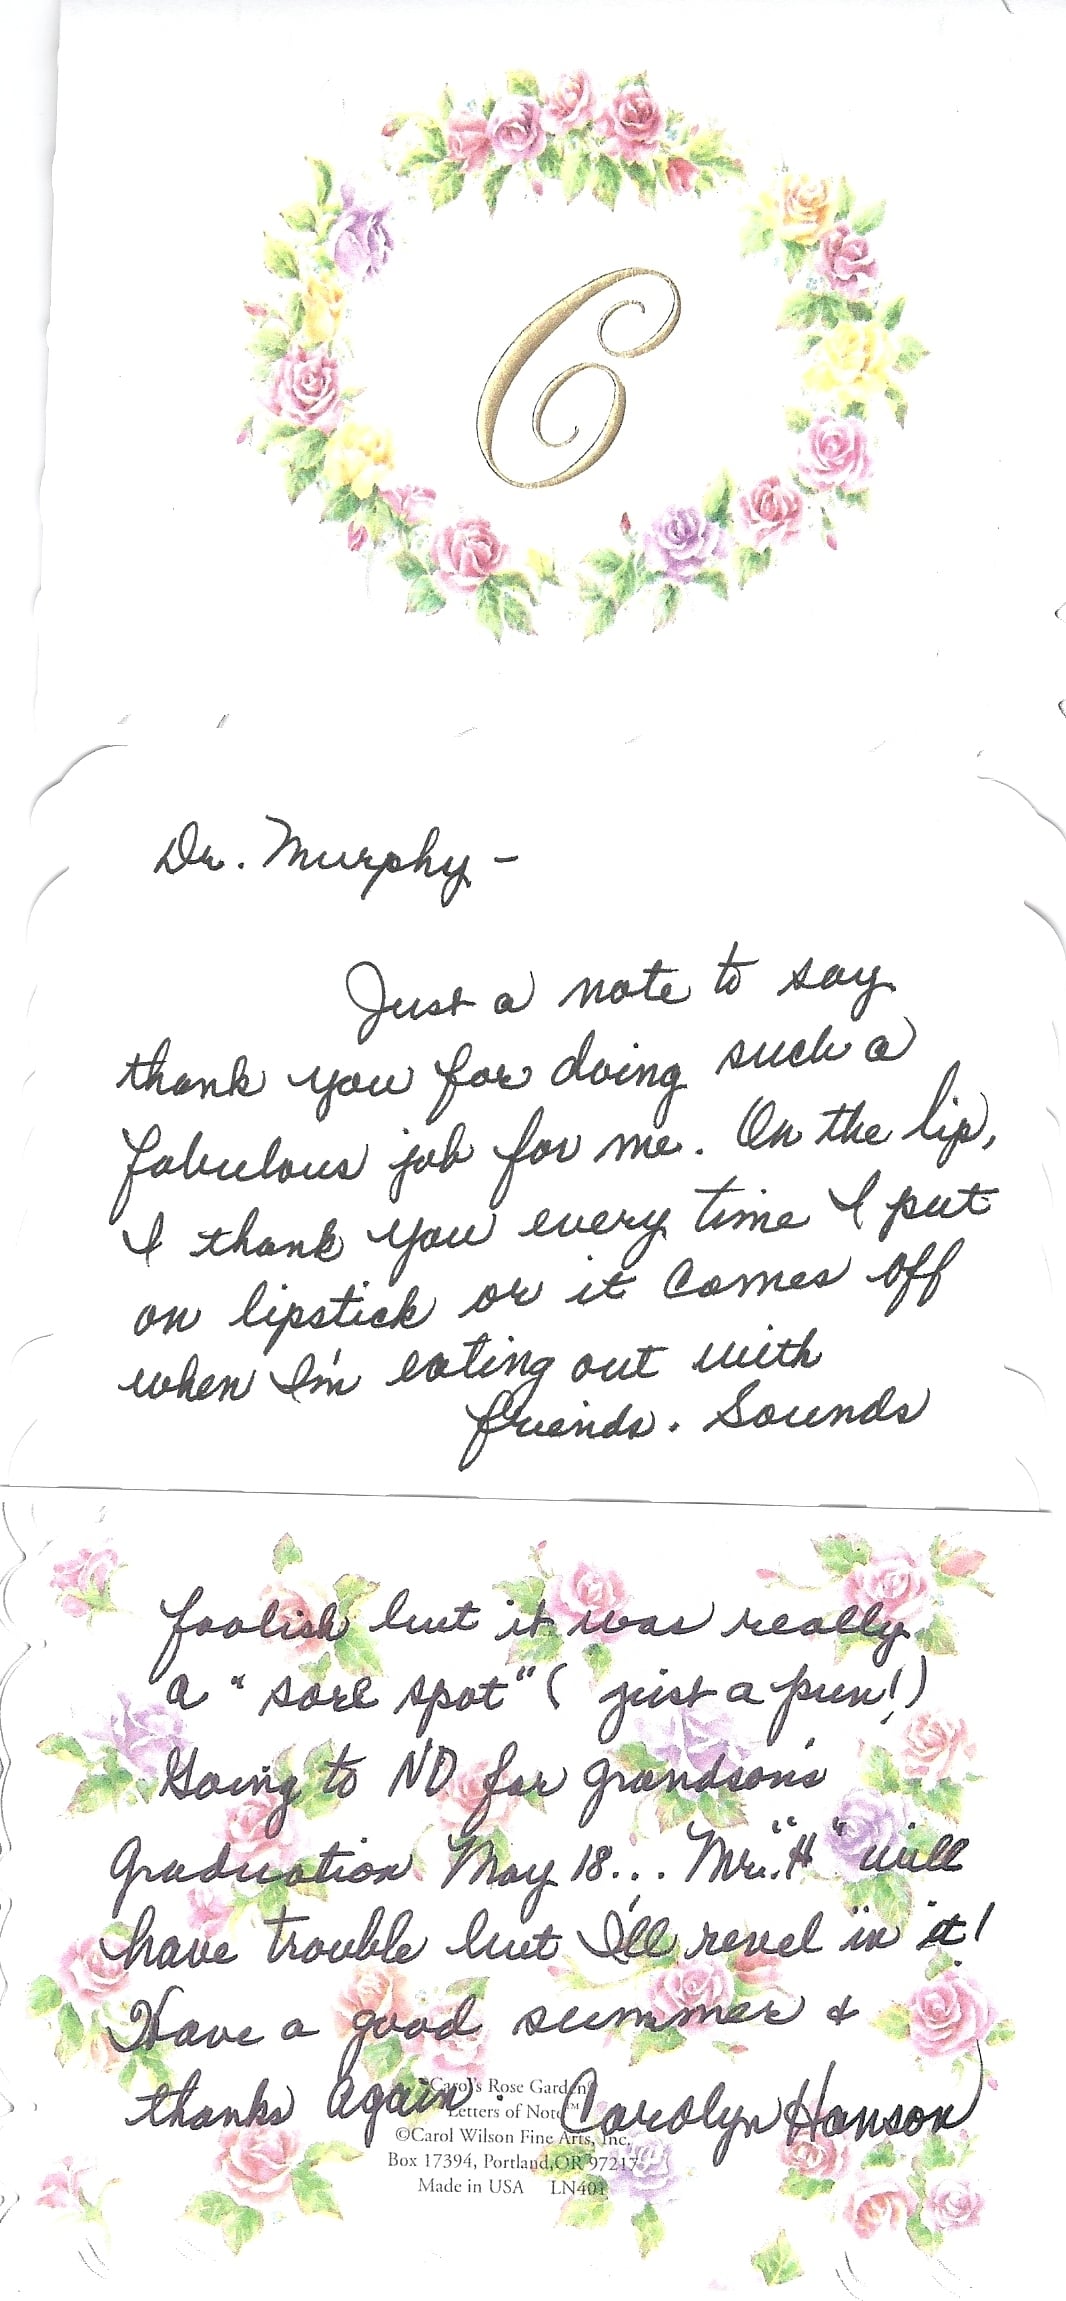 C
Dr. Murphy -
Just a note to say
thank you for doing such a
fabulous job for me. On the lip,
I thank you every time I put
on lipstick or it comes off
when I'm eating out with
friends. Sounds
foolish but it was really
a "sore spot" (just a pun!)
Going to ND for grandson's
graduation May 18... Mr. "H" will
have trouble but I'll revel in it!
Have a good summer &
thanks again. Carolyn Hanson
Carol's Rose Garden
Letters of Note™
©Carol Wilson Fine Arts, Inc.
Box 17394, Portland, OR 97217
Made in USA LN401